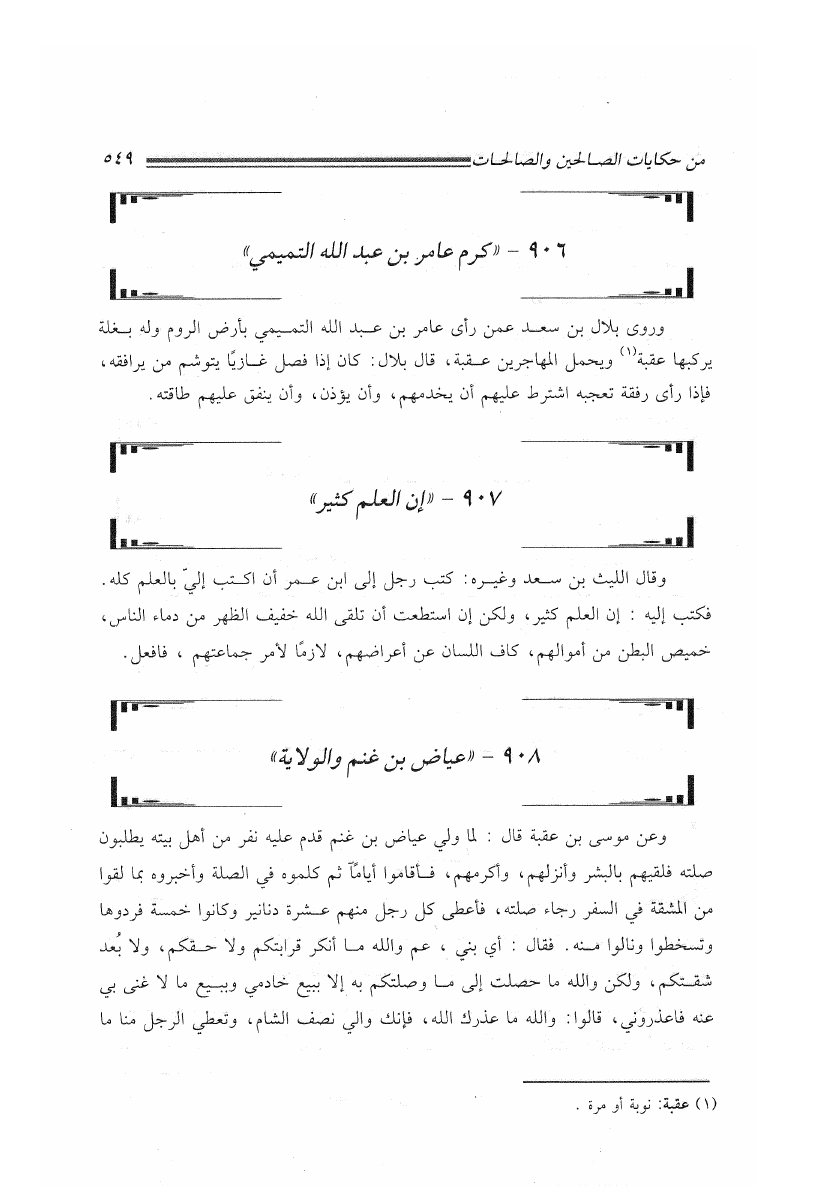 من حكايات الصالحين والصالحات ٥٤٩
٩٠٦ - «كرم عامر بن عبد الله التميمي»
وروى بلال بن سعد عمن رأى عامر بن عبد الله التميمي بأرض الروم وله بغلة
يركبها عقبة(١) ويحمل المهاجرين عقبة، قال بلال: كان إذا فصل غازيًا يتوشم من يرافقه،
فإذا رأى رفقة تعجبه اشترط عليهم أن يخدمهم، وأن يؤذن، وأن ينفق عليهم طاقته.
٩٠٧ - «إن العلم كثير»
وقال الليث بن سعد وغيره: كتب رجل إلى ابن عمر أن اكتب إليّ بالعلم كله.
فكتب إليه : إن العلم كثير، ولكن إن استطعت أن تلقى الله خفيف الظهر من دماء الناس،
خميص البطن من أموالهم، كاف اللسان عن أعراضهم، لازمًا لأمر جماعتهم ، فافعل.
٩٠٨ - «عياض بن غنم والولاية»
وعن موسى بن عقبة قال : لما ولي عياض بن غنم قدم عليه نفر من أهل بيته يطلبون
صلته فلقيهم بالبشر وأنزلهم، وأكرمهم، فأقاموا أيامًا ثم كلموه في الصلة وأخبروه بما لقوا
من المشقة في السفر رجاء صلته، فأعطى كل رجل منهم عشرة دنانير وكانوا خمسة فردوها
وتسخطوا ونالوا منه. فقال : أي بني ، عم والله ما أنكر قرابتكم ولا حقكم، ولا بُعد
شقتكم، ولكن والله ما حصلت إلى ما وصلتكم به إلا ببيع خادمي وببيع ما لا غنى بي
عنه فاعذروني، قالوا: والله ما عذرك الله، فإنك والي نصف الشام، وتعطي الرجل منا ما
(١) عقبة: نوبة أو مرة .